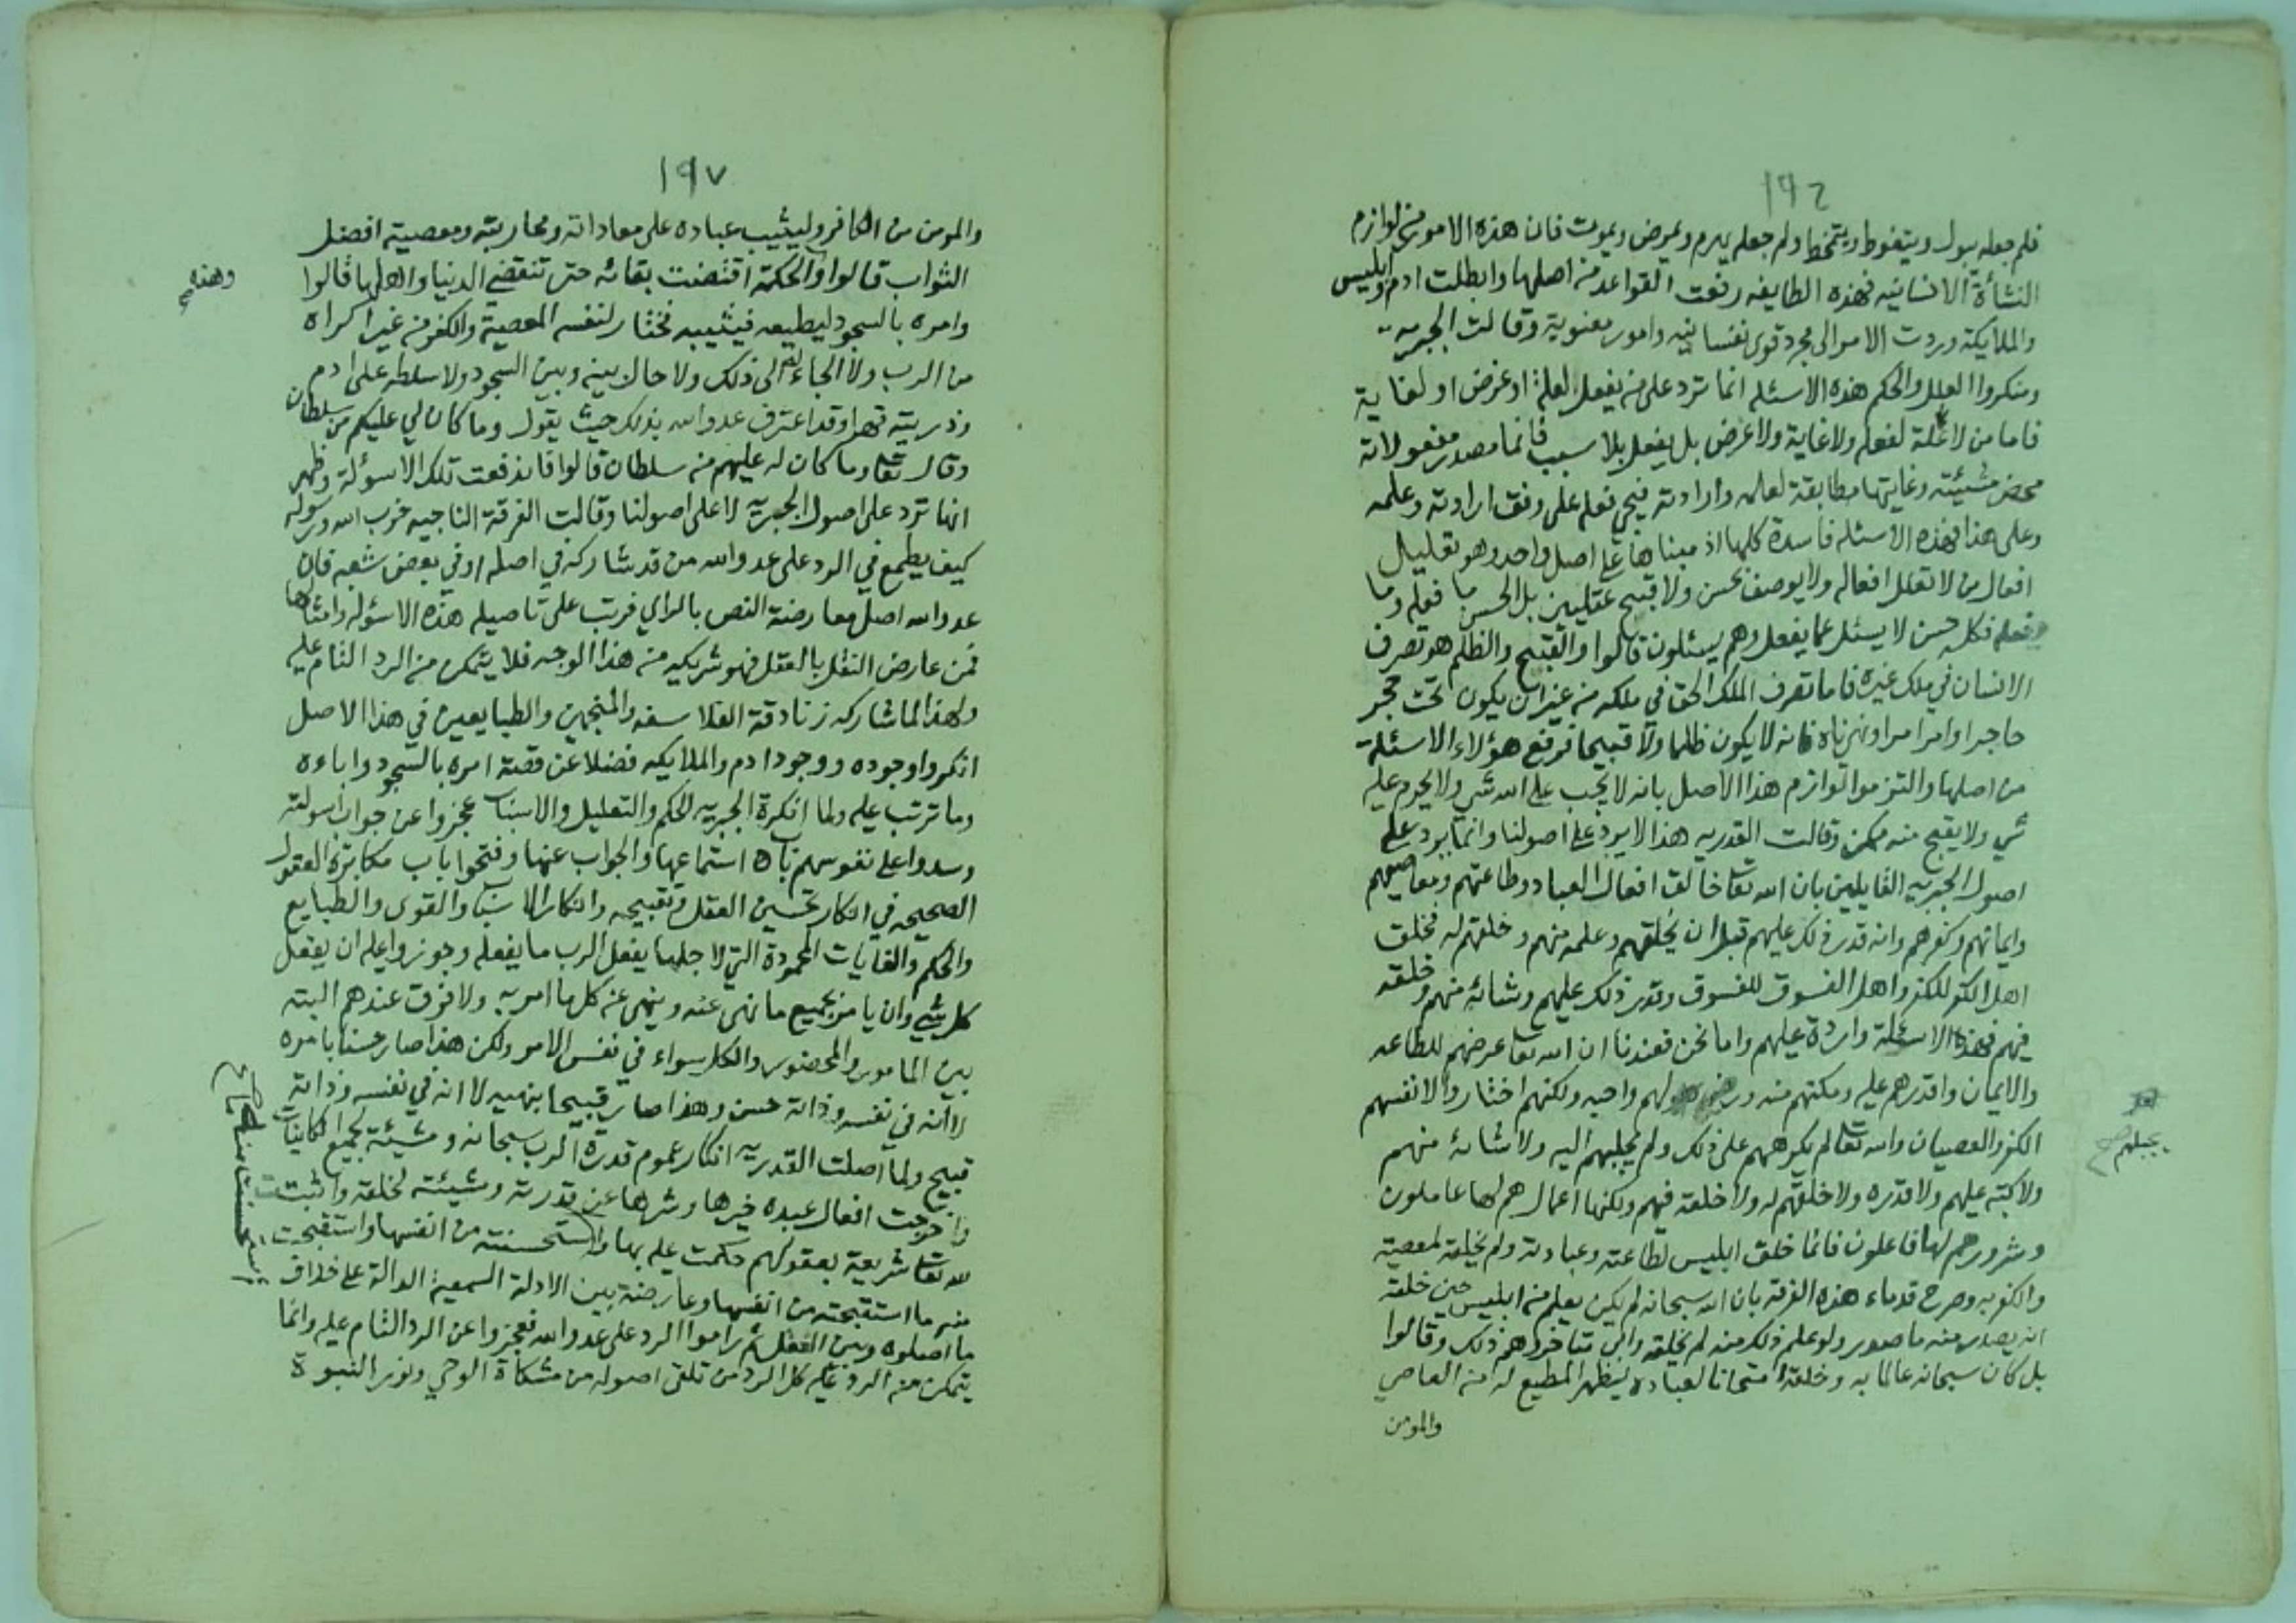 ١٩٦
فلم جعله يبول ويتغوط ويتمخط ولم جعله يهرم ويمرض ويموت فان هذه الامور من لوازم
النشأة الانسانيه فهذه الطايفه رفعت القواعد من اصلها وابطلت ادم وابليس
والملايكة وردت الامر الى مجرد قوى نفسانيه وامور معنوية وقالت الجبريه
ومنكروا العلل والحكم هذه الاسئله انما ترد على من يفعل لعلة او غرض او لغاية
فاما من لا علة لفعله ولا غاية ولا غرض بل يفعل بلا سبب فانما مصدر مفعولاته
محض مشيئته وغايتها مطابقة لعلمه وارادته فيجي فعله على وفق ارادته وعلمه
وعلى هذا فهذه الاسئله فاسدة كلها اذ مبناها على اصل واحد وهو تعليل
افعال من لا تعلل افعاله ولا يوصف بحسن ولا قبيح عقليين بل الحسن ما فعله وما
فعله فكله حسن لا يسئل عما يفعل وهم يسئلون قالوا والقبح والظلم هو تصرف
الانسان في ملك غيره فاما تصرف الملك الحق في ملكه من غير ان يكون تحت حجر
حاجر او امر امر او نهي ناه فانه لا يكون ظلما ولا قبيحا فرفع هؤلاء الاسئلة
من اصلها والتزموا لوازم هذا الاصل بانه لا يجب على الله شي ولا يحرم عليه
شي ولا يقبح منه ممكن وقالت القدريه هذا لا يرد على اصولنا وانما يرد على
اصول الجبريه القايلين بان الله تعا خالق افعال العباد وطاعتهم ومعاصيهم
وايمانهم وكفرهم وانه قدر ذلك عليهم قبل ان يخلقهم وعلمه منهم وخلقهم له فخلق
اهل الكفر للكفر واهل الفسوق للفسوق وقدر ذلك عليهم وشائه منهم وخلقه
فيهم فهذه الاسئلة واردة عليهم واما نحن فعندنا ان الله تعا عرضهم للطاعه
والايمان واقدرهم عليه ومكنهم منه ورضيه لهم واحبه ولكنهم اختاروا لانفسهم
الكفر والعصيان والله تعا لم يكرههم على ذلك ولم يلجهم اليه ولا شائه منهم
يجبلهم
ولا كتبه عليهم ولا قدره ولا خلقهم له ولا خلقه فيهم ولكنها اعمال هم لها عاملون
وشرور هم لها فاعلون فانما خلق ابليس لطاعته وعبادته ولم يخلقه لمعصيته
والكفر به وصرح قدماء هذه الفرقه بان الله سبحانه لم يكن يعلم من ابليس حين خلقه
انه يصدر منه ما صدر ولو علم ذلك منه لم يخلقه وابى متاخروهم ذلك وقالوا
بل كان سبحانه عالما به وخلقه امتحانا لعباده ليظهر المطيع له من العاصي
والمومن
١٩٧
والمومن من الكافر وليثيب عباده على معاداته ومحاربته ومعصيته افضل
الثواب قالوا والحكمة اقتضت بقائه حتى تنقضي الدنيا واهلها قالوا
وهذه
وامره بالسجود ليطيعه فيثيبه فختار لنفسه المعصية والكفر من غير اكراه
من الرب ولا الجاء له الى ذلك ولا حال بينه وبين السجود ولا سلطه على ادم
وذريته قهرا وقد اعترف عدو الله بذلك حيث يقول وما كان لي عليكم من سلطان
وقال تعا وما كان له عليهم من سلطان قالوا فاندفعت تلك الاسولة وظهر
انها ترد على اصول الجبريه لا على اصولنا وقالت الفرقة الناجيه حزب الله ورسوله
كيف يطمع في الرد على عدو الله من قد شاركه في اصله او في بعض شعبه فان
عدو الله اصل معارضة النص بالراي فرتب على تاصيله هذه الاسئوله وامثالها
فمن عارض النقل بالعقل فهو شريكه من هذا الوجه فلا يتمكن من الرد التام عليه
ولهذا لما شاركه زنادقة الفلاسفه والمنجمين والطبايعين في هذا الاصل
انكروا وجوده ووجود ادم والملايكه فضلا عن قصة امره بالسجود واباءه
وما ترتب عليه ولما انكرة الجبريه للحكم والتعليل والاسباب عجزوا عن جواب اسولته
وسدوا على نفوسهم باب استماعها والجواب عنها وفتحوا باب مكابرة العقول
الصحيحه في انكار تحسين العقل وتقبيحه وانكار الاسباب والقوى والطبايع
والحكم والغايات المحمودة التي لاجلها يفعل الرب ما يفعله وجوزوا عليه ان يفعل
كل شي وان يامر بجميع ما نهى عنه وينهى عن كل ما امر به ولا فرق عندهم البته
بين المامور والمحضور والكل سواء في نفس الامر ولكن هذا صار حسنا بامره
لا انه في نفسه وذاته حسن وهذا صار قبيحا بنهيه لا انه في نفسه وذاته
قبيح ولما اصلت القدريه انكار عموم قدرة الرب سبحانه ومشيئة لجميع الكاينات
واخرجت افعال عبده خيرها وشرها عن قدرته ومشيئته لخلقه واثبتت
لله تعا شريعة بعقولهم حكمت عليه بها واستحسنت من انفسها واستقبحت
منه ما استقبحته من انفسها وعارضته بين الادلة السمعية الدالة على خلاف
ما اصلوه وبين العقل ثم راموا الرد على عدو الله فعجزوا عن الرد التام عليه وانما
يتمكن من الرد عليه كل الرد من تلقى اصوله من مشكاة الوحي ونور النبوة